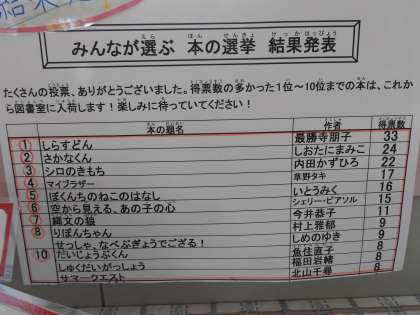 みんなが選ぶ 本の選挙 結果発表
たくさんの投票、ありがとうございました。得票数の多かった1位～10位までの本は、これか
ら図書室に入荷します！楽しみに待っていてください！
本の題名 作者 得票数
① しらすどん 最勝寺朋子 33
② さかなくん しおたにまみこ 24
③ シロのきもち 内田かずひろ 22
④ マイブラザー 草野タキ 17
⑤ ぼくんちのねこのはなし いとうみく 16
⑥ 空から見える、あの子の心 シェリー・ピアソル 15
⑦ 縄文の狼 今井恭子 11
⑧ りぼんちゃん 村上雅郁 9
せっしゃ、なべぶぎょうでござる！ しめのゆき 9
10 だいじょうぶくん 魚住直子 8
しゅくだいがっしょう 福田岩緒 8
サマークエスト 北山千尋 8